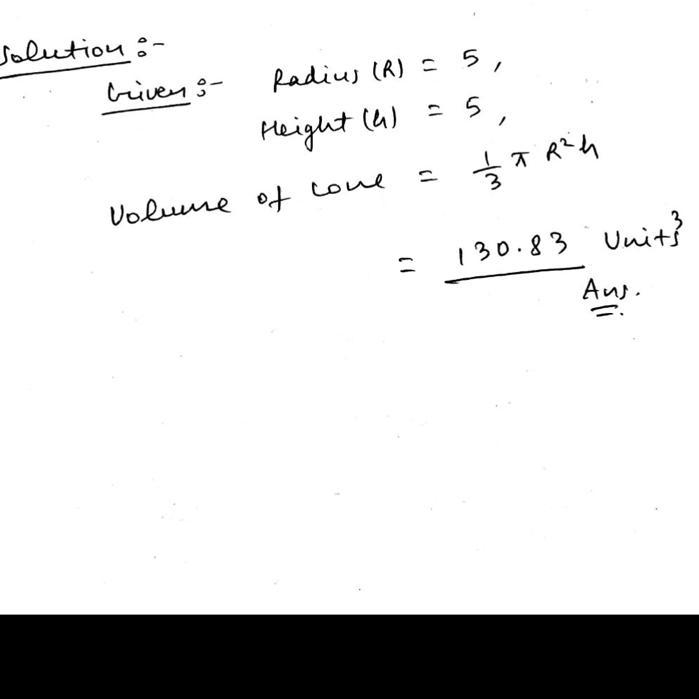 Solution :-
Given :- Radius (R) = 5,
Height (h) = 5,
Volume of cone = 1/3 π R²h
= 130.83 Units³
Ans.